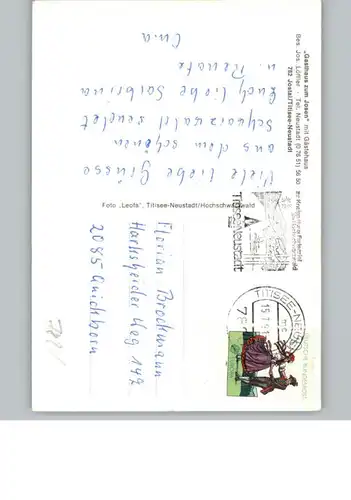 „Gasthaus zum Josen“ mit Gästehaus
Bes. Jos. Löffler · Tel. Neustadt (0 76 51) 56 50
782 Jostal/Titisee-Neustadt
Viele liebe Grüsse
aus dem schönen
Schwarzwald sendet
Euch liebe Sabrina
u. Renate
Foto „Leofa“, Titisee-Neustadt/Hochschwarzwald
Titisee-Neustadt
TITISEE-NEUS
Florian Brockmann
Harksheider Weg 142
2085 Quickborn